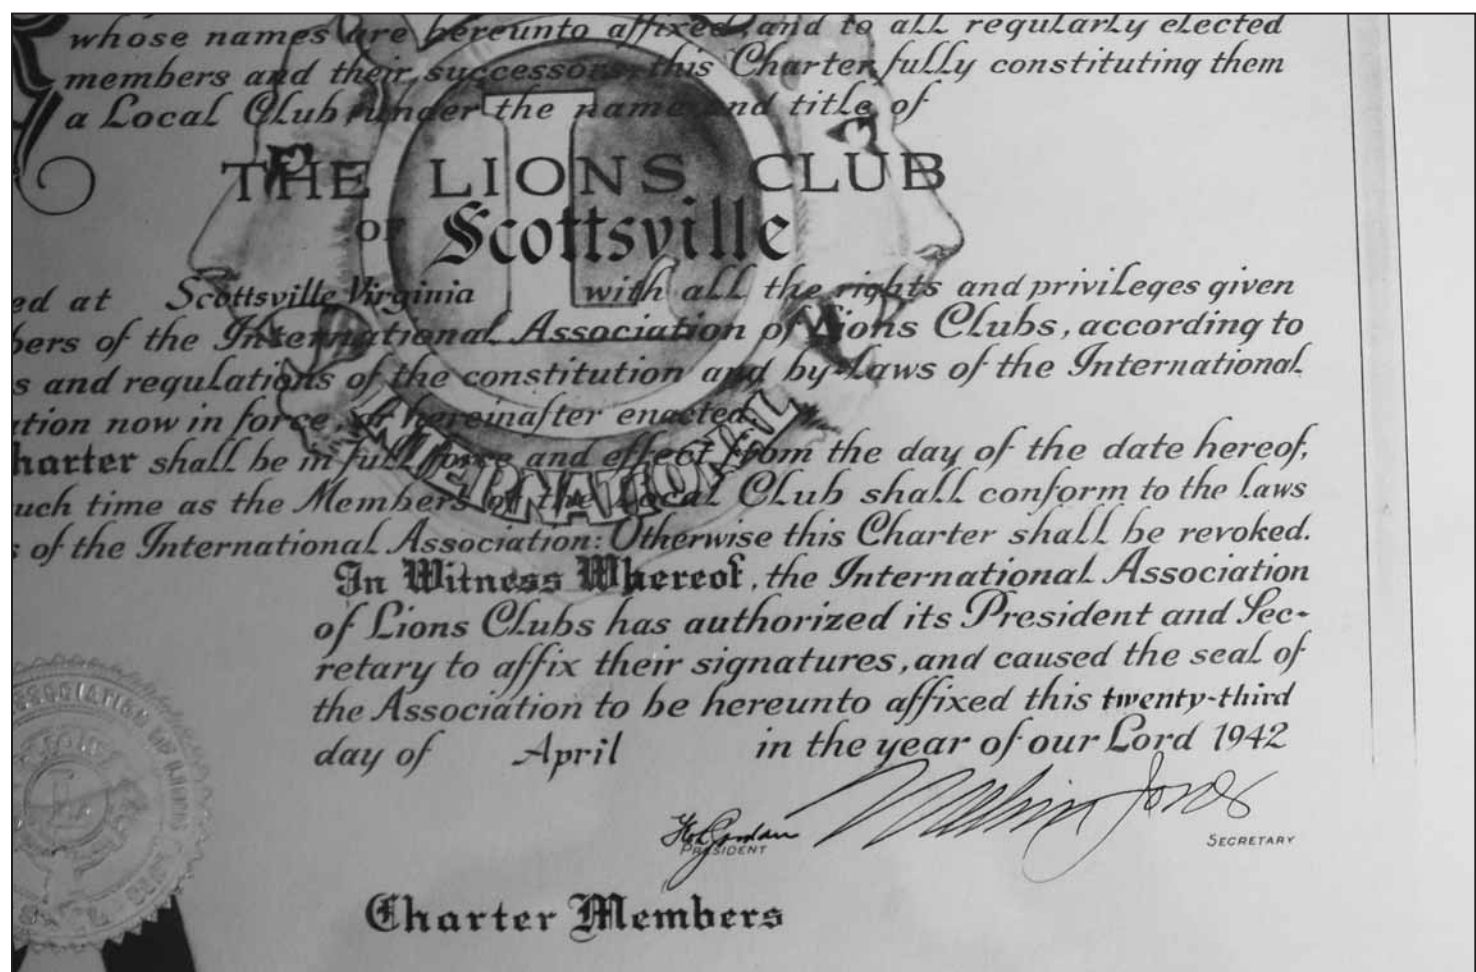 whose names are hereunto affixed, and to all regularly elected
members and their successors, this Charter fully constituting them
a Local Club, under the name and title of
THE LIONS CLUB
OF Scottsville
ed at Scottsville Virginia with all the rights and privileges given
bers of the International Association of Lions Clubs, according to
s and regulations of the constitution and by-laws of the International
ation now in force, or hereinafter enacted.
harter shall be in full force and effect from the day of the date hereof,
uch time as the Members of the Local Club shall conform to the laws
s of the International Association: Otherwise this Charter shall be revoked.
In Witness Whereof, the International Association
of Lions Clubs has authorized its President and Sec-
retary to affix their signatures, and caused the seal of
the Association to be hereunto affixed this twenty-third
day of April in the year of our Lord 1942
Melvin Jones
PRESIDENT SECRETARY
Charter Members
L
INTERNATIONAL
ASSOCIATION OF LIONS
L